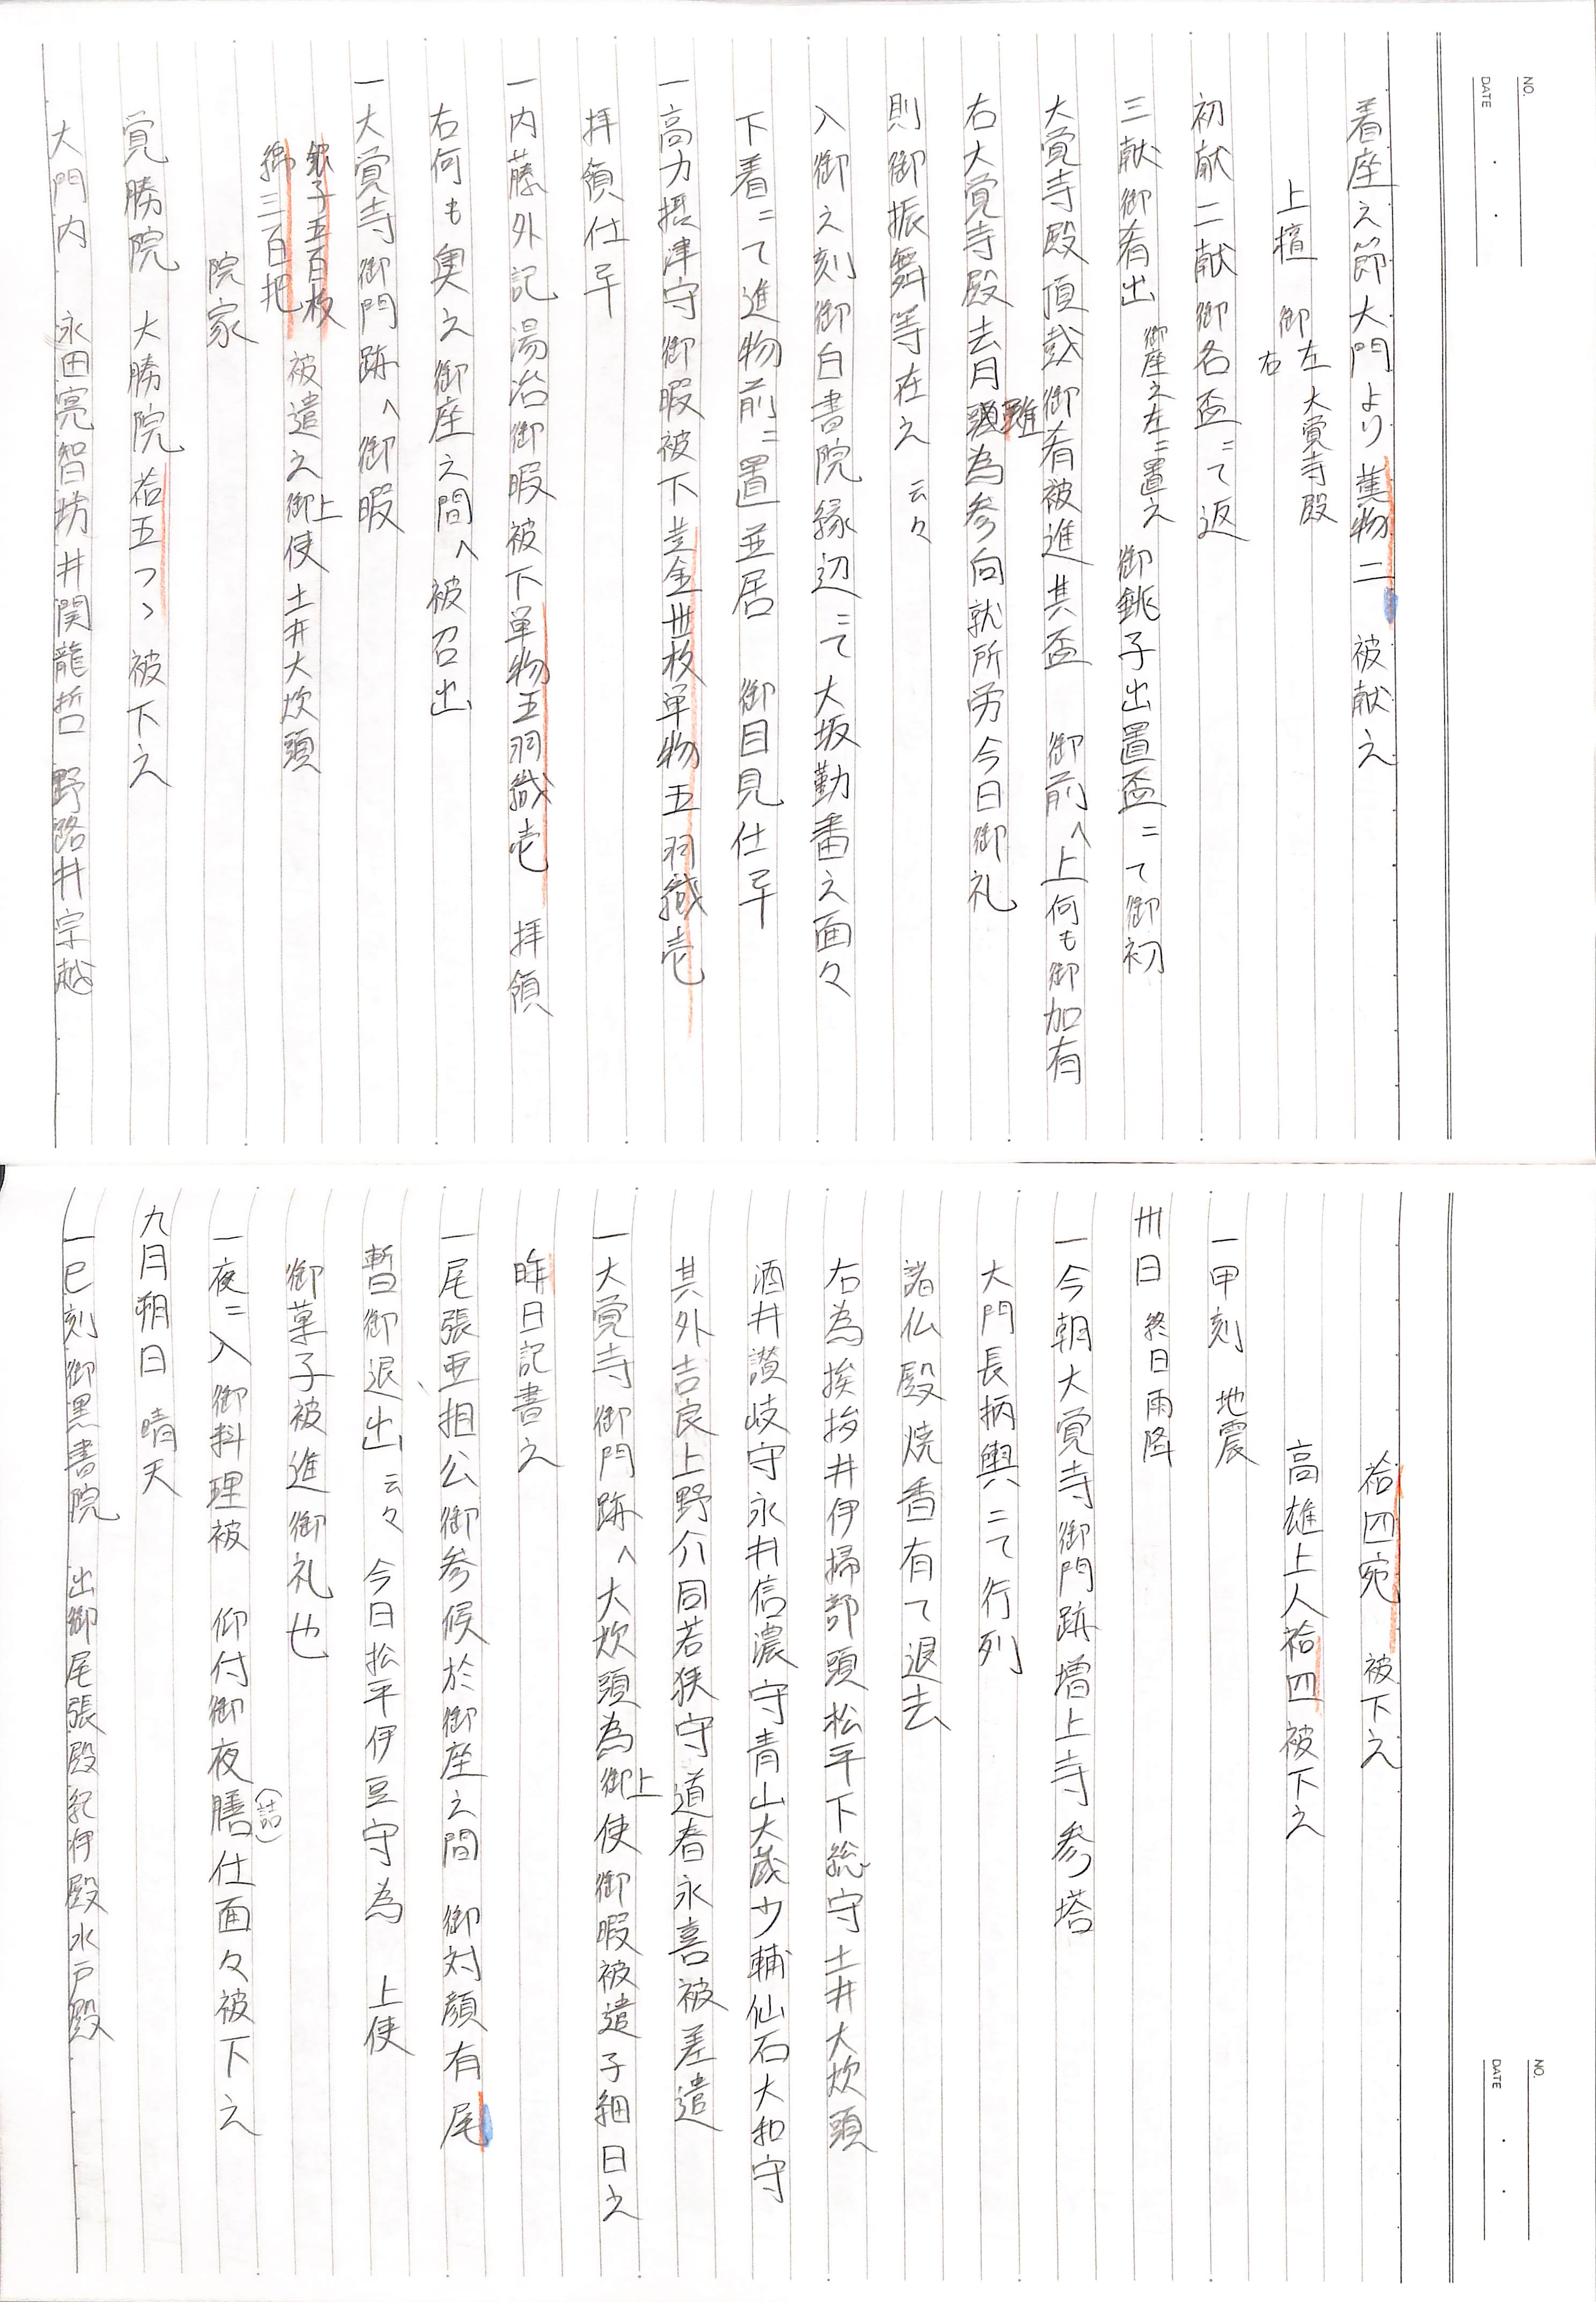 NO.
DATE
着座之節大門より薫物二 被献之
上壇 御左 大覚寺殿
右
初献二献御名盃ニて返
三献御肴出 御座之左ニ置之 御銚子出置盃ニて御初
大覚寺殿頂戴御肴被進其盃 御前へ上何も御加有
右大覚寺殿去月 雖為参向就所労今日御礼
則御振舞等在之 云々
入御之刻御白書院縁辺ニて大坂勤番之面々
下着ニて進物前ニ置並居 御目見仕早
一高力摂津守御暇被下 金卅枚単物五羽織壱
拝領仕早
一内藤外記湯治御暇被下単物五羽織壱 拝領
右何も奥之御座之間へ被召出
一大覚寺御門跡へ御暇
銀子五百枚
綿三百把 被遣之御上使土井大炊頭
院家
覚勝院 大勝院 袷五つゝ被下之
大門内 永田亮智坊井関龍哲 野路井宗越
NO.
DATE
袷四宛 被下之
高雄上人袷四被下之
一甲刻 地震
卅日 終日雨降
一今朝大覚寺御門跡増上寺参塔
大門長柄輿ニて行列
諸仏殿焼香有て退去
右為挨拶井伊掃部頭松平下総守土井大炊頭
酒井讃岐守永井信濃守青山大蔵少輔仙石大和守
其外吉良上野介同若狭守道春永喜被差遣
一大覚寺御門跡へ大炊頭為御上使御暇被遣子細日之
昨日記書之
一尾張亜相公御参候於御座之間 御対顔有尾
暫御退出 云々 今日松平伊豆守為 上使
御菓子被進御礼也
一夜ニ入御料理被 仰付御夜膳仕面々被下之
(詰)
九月朔日 晴天
一巳刻御黒書院 出御尾張殿紀伊殿水戸殿